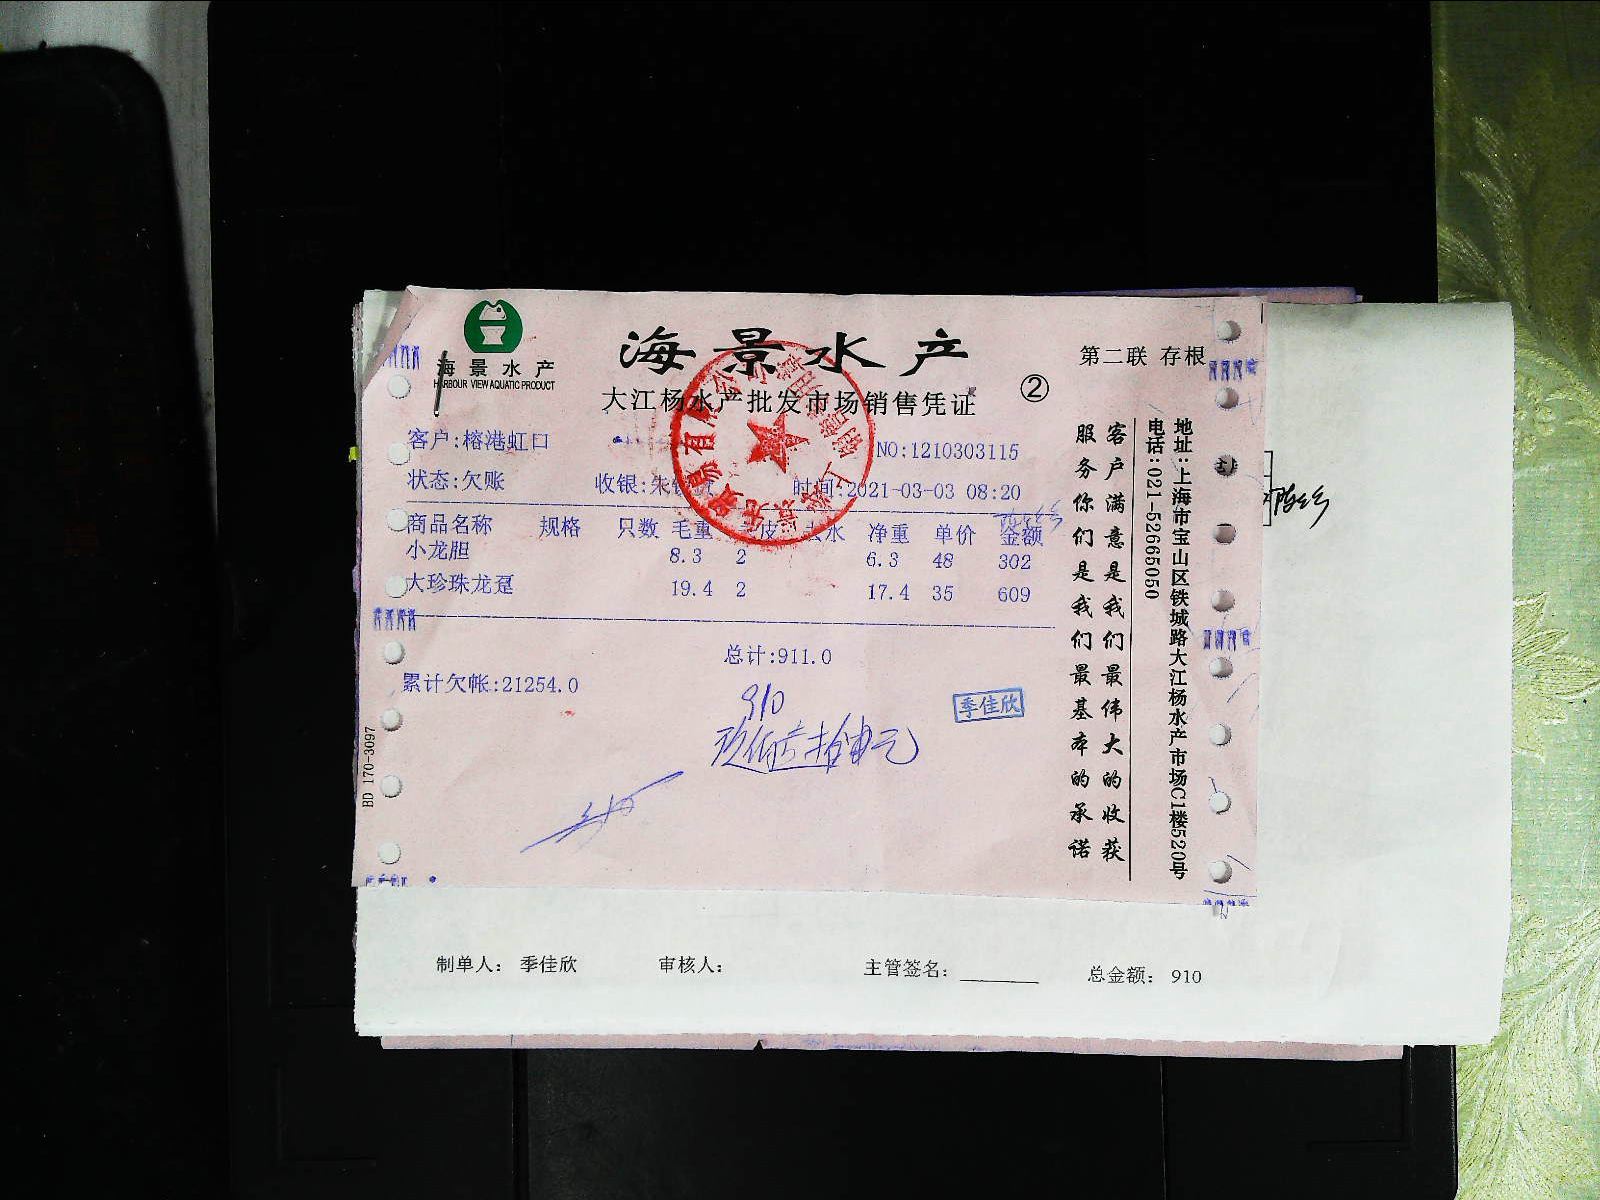 海景水产
HARBOUR VIEW AQUATIC PRODUCT
海景水产
大江杨水产批发市场销售凭证
②
第二联 存根
客户:榕港虹口
NO:1210303115
状态:欠账 收银:朱 时间:2021-03-03 08:20
商品名称 规格 只数 毛重 皮 去水 净重 单价 金额
小龙胆 8.3 2 6.3 48 302
大珍珠龙趸 19.4 2 17.4 35 609
总计:911.0
累计欠帐:21254.0
910
玖佰壹拾元
季佳欣
BD 170-3097
客户满意是我们最伟大的收获
服务你们是我们最基本的承诺
地址:上海市宝山区铁城路大江杨水产市场C1楼520号
电话:021-52665050
制单人: 季佳欣 审核人: 主管签名: 总金额: 910